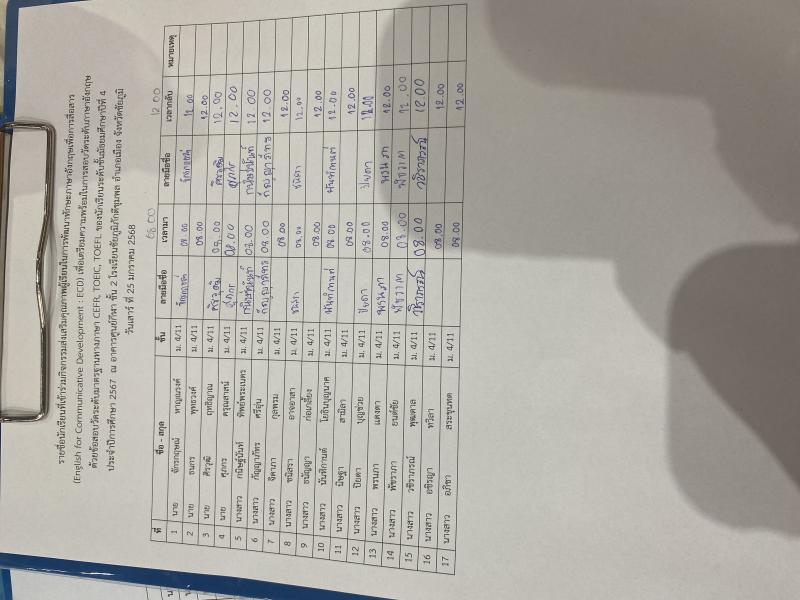 รายชื่อนักเรียนที่เข้าร่วมกิจกรรมส่งเสริมคุณภาพผู้เรียนในการพัฒนาทักษะภาษาอังกฤษเพื่อการสื่อสาร
(English for Communicative Development : ECD) เพื่อเตรียมความพร้อมในการสอบวัดระดับภาษาอังกฤษ
ด้วยข้อสอบวัดระดับมาตรฐานทางภาษา CEFR, TOEIC, TOEFL ของนักเรียนระดับชั้นมัธยมศึกษาปีที่ 4
ประจำปีการศึกษา 2567 ณ อาคารศูนย์กีฬา ชั้น 2 โรงเรียนชัยภูมิภักดีชุมพล อำเภอเมือง จังหวัดชัยภูมิ
วันเสาร์ ที่ 25 มกราคม 2568
08.00 12.00
ที่ ชื่อ - สกุล ชั้น ลายมือชื่อ เวลามา ลายมือชื่อ เวลากลับ หมายเหตุ
1 นาย จักรกฤษณ์ หาญณรงค์ ม. 4/11 08.00 12.00
2 นาย ธนกร พุทธวงศ์ ม. 4/11 08.00 12.00
3 นาย ศิรวุฒิ ฤทธิญาณ ม. 4/11 ศิรวุฒิ 08.00 ศิรวุฒิ 12.00
4 นาย ศุภกร ครุณเสน่ห์ ม. 4/11 ศุภกร 08.00 ศุภกร 12.00
5 นางสาว กนิษฐ์นันท์ ทิพย์พระเนตร ม. 4/11 กนิษฐ์นันท์ 08.00 กนิษฐ์นันท์ 12.00
6 นางสาว กัญญาภัทร ศรีอุ่น ม. 4/11 กัญญาภัทร 08.00 กัญญาภัทร 12.00
7 นางสาว จิดาภา กุลพรม ม. 4/11 08.00 12.00
8 นางสาว ชนิสรา อาจอาสา ม. 4/11 ชนิสรา 08.00 ชนิสรา 12.00
9 นางสาว ธนัญญา ก่อนเสี้ยง ม. 4/11 08.00 12.00
10 นางสาว นันทิกานต์ โยธินบุญนาค ม. 4/11 นันทิกานต์ 08.00 นันทิกานต์ 12.00
11 นางสาว นิษฐา สามิลา ม. 4/11 08.00 12.00
12 นางสาว ปิยดา บุญช่วย ม. 4/11 ปิยดา 08.00 ปิยดา 12.00
13 นางสาว พรนภา แดงดา ม. 4/11 พรนภา 08.00 พรนภา 12.00
14 นางสาว พัชราภา ยนต์ชัย ม. 4/11 พัชราภา 08.00 พัชราภา 12.00
15 นางสาว วชิราภรณ์ พุฒตาล ม. 4/11 วชิราภรณ์ 08.00 วชิราภรณ์ 12.00
16 นางสาว อชิรญา ทวีลา ม. 4/11 08.00 12.00
17 นางสาว อภิชา สระขุนทด ม. 4/11 08.00 12.00